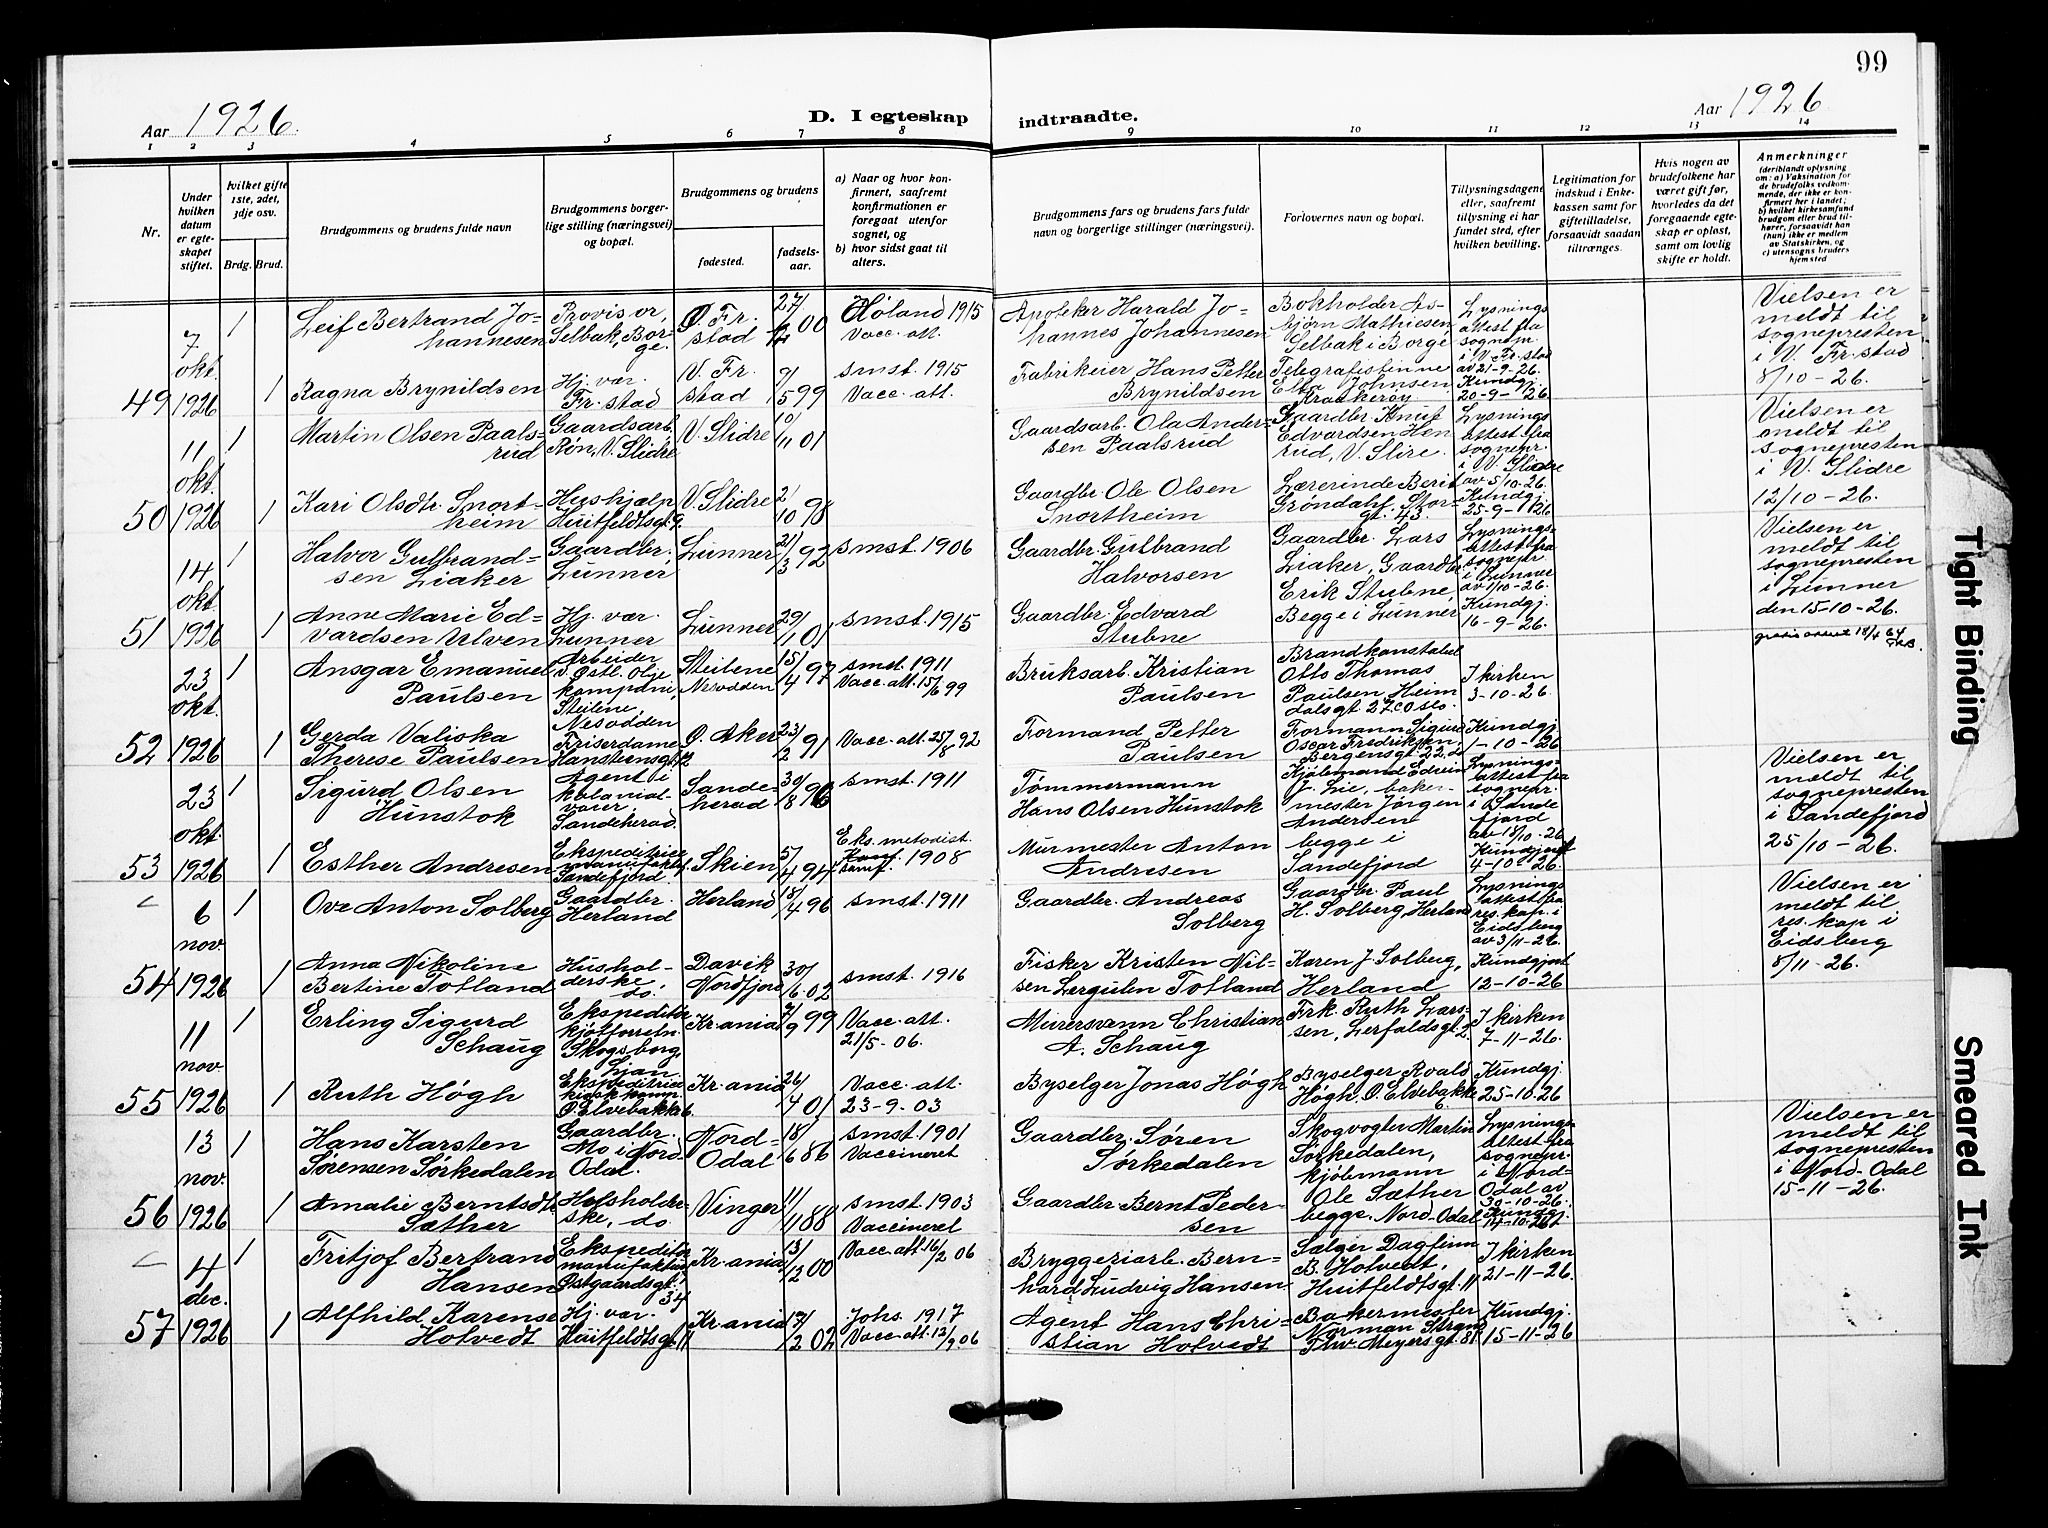 99
Aar 1926.
D. I egteskap
indtraadte.
Aar 1926
1 2 3 4 5 6 7 8 9 10 11 12 13 14
Nr.
Under hvilken datum er egteskapet stiftet.
hvilket gifte 1ste, 2det, 3dje osv.
Brdg. Brud.
Brudgommens og brudens fulde navn
Brudgommens borgerlige stilling (næringsvei) og bopæl.
Brudgommens og brudens
fødested.
fødselsaar.
a) Naar og hvor konfirmert, saafremt konfirmationen er foregaat utenfor sognet, og
b) hvor sidst gaat til alters.
Brudgommens fars og brudens fars fulde navn og borgerlige stillinger (næringsvei).
Forlovernes navn og bopæl.
Tillysningsdagene eller, saafremt tillysning ei har fundet sted, efter hvilken bevilling.
Legitimation for indskud i Enkekassen samt for giftetilladelse, forsaavidt saadan tiltrænges.
Hvis nogen av brudefolkene har været gift før, hvorledes da det foregaaende egteskap er opløst, samt om lovlig skifte er holdt.
Anmerkninger (deriblandt oplysning om: a) Vaksination for de brudefolks vedkommende, der ikke er konfirmert her i landet; b) hvilket kirkesamfund brudgom eller brud tilhører, forsaavidt han (hun) ikke er medlem av Statskirken, og c) utensogns bruders hjemsted
49 7 okt. 1926
1 Leif Bertrand Johannesen Provisor, Selbak, Borge. Ø. Fr.stad 00 Høland 1915 Vacc. att. Apoteker Harald Johannes Johannesen Bokholder Asbjørn Mathiesen Selbak i Borge Lysningsattest fra sognepr. i V. Fr.stad av 21-9-26. Vielsen er meldt til sognepresten i V. Fr.stad 8/10-26.
1 Ragna Brynildsen Hj. vær. Fr.stad V. Fr.stad 9/5 99 smst. 1915 Vacc. att. Fabrikeier Hans Petter Brynildsen Telegrafistinne Johnsen Kraakerøy Kundgj. 20-9-1926
50 11 okt. 1926
1 Martin Olsen Paalsrud Gaardsarb. Røn, V. Slidre V. Slidre 10/11 01 Gaardsarb. Ola Andersen Paalsrud Gaardbr. Knut Edvardsen Henrud, V. Slire. Lysningsattest fra sognepr. i V. Slidre av 5/10-26. Vielsen er meldt til sognepresten i V. Slidre 12/10-26.
1 Kari Olsdtr. Snortheim Hushjælp Huitfeldtsgt. 9. V. Slidre 2/10 98 Gaardbr. Ole Olsen Snortheim Lærerinde Berit Grøndahl, Storgt. 43. Kundgj. 25-9-1926
51 14 okt. 1926
1 Halvor Gulbrandsen Liaker Gaardbr. Lunner Lunner 21/3 92 smst. 1906 Gaardbr. Gulbrand Halvorsen Gaardbr. Lars Liaker, Gaardbr. Erik Stubne, Begge i Lunner Lysningsattest fra sognepr. i Lunner av 1/10-26. Vielsen er meldt til sognepresten i Lunner den 15-10-26.
1 Anne Marie Edvardsen Ulven Hj. vær. Lunner Lunner 29/1 01 smst. 1915 Gaardbr. Edvard Stubne Kundgj. 16-9-26.
52 23 okt. 1926
1 Ansgar Emanuel Paulsen Arbeider v. Østl. Oljekompani, Steilene, Nesodden Steilene Nesodden 15/4 97 smst. 1911 Vacc. att. 15/6 99 Bruksarb. Kristian Paulsen Brandkonstabel Otto Thomas Paulsen Heimdalsgt. 27 c Oslo. I kirken 3-10-26.
1 Gerda Valiska Therese Paulsen Friserdame Hansteensgt. 2. Ø. Aker 23/2 91 Vacc. att. 25/8 92 Formand Petter Paulsen Formann Sigurd Oscar Fredriksen, Bergensgt. 22 Kundgj. 1-10-1926
53 23 okt. 1926
1 Sigurd Olsen Hunstok Agent i kolonialvarer Sandeherad. Sandeherad 30/8 96 smst. 1911 Tømmermann Hans Olsen Hunstok Kjøbmand Edvin J. Lie, bakermester Jørgen Andersen begge i Sandefjord Lysningsattest fra sognepr. i Sandefjord av 18/10-26 Vielsen er meldt til sognepresten i Sandefjord 25/10-26.
1 Esther Andresen Ekspeditrice Sandefjord. Skien 5/4 94 Eks. metodist. konf. 1908 Murmester Anton Andresen Kundgjort 4-10-26
54 6 nov. 1926
1 Ove Anton Solberg Gaardbr. Herland Herland 18/4 96 smst. 1911 Gaardbr. Andreas Solberg Gaardbr. Paul H. Solberg, Herland Lysningsattest fra res. kap. i Eidsberg av 3/11-26. Vielsen er meldt til res. kap i Eidsberg 8/11-26.
1 Anna Nikoline Bertine Totland Husholderske do. Davik Nordfjord 30/6 02 smst. 1916 Fisker Kristen Nilsen Totland Karen J. Solberg, Herland Kundgjort 12-10-26
55 11 nov. 1926
1 Erling Sigurd Schaug Ekspeditør kjøtforretn. Skogsborg, Ljan Kr.ania 7/9 99 Vacc. att. 21/5-06. Murersvenn Christian A. Schaug Frk. Ruth Larssen, Lerfaldsgt. 2. I kirken 7-11-26.
1 Ruth Høgh Ekspeditrice Ø. Elvebakke 6. Kr.ania 26/4 01 Vacc. att. 23-9-03 Byselger Jonas Høgh Byselger Roald Høgh, Ø. Elvebakke 6 Kundgj. 25-10-26
56 13 nov. 1926
1 Hans Karsten Sørensen Sørkedalen Gaardbr. Mo i Nord-Odal. Nord-Odal 18/6 86 smst. 1901 Vaccineret Gaardbr. Søren Sørkedalen Skogvogter Martin Sørkedalen, kjøbmann Ole Sæther begge. Nord-Odal Lysningsattest fra sognepr. i Nord-Odal av 30-10-26. Vielsen er meldt til sognepresten i Nord-Odal 15-11-26.
1 Amalie Berntsdtr. Sæther Husholderske, do. Vinger 11/11 88 smst. 1903 Vaccineret Gaardbr. Bernt Pedersen Kundgj. 14-10-26
57 4 dec. 1926
1 Fritjof Bertrand Hansen Ekspeditør manufaktur Østgaardsgt. 34 Kr.ania 13/12 00 Vacc. att. 16/2 06 Bryggeriarb. Bernhard Ludvig Hansen Sælger Dagfinn B. Holvedt, Huitfeldtsgt. 11 I kirken 21-11-26.
1 Alfhild Karense Holvedt Hj. vær. Huitfeldtsgt. 11 Kr.ania 17/2 02 Johs. 1917 Vacc. att. 12/9 06 Agent Hans Christian Holvedt Bakermester Norman Strand Thv. Meyersgt. 81 Kundgj. 15-11-26
Tight Binding
Smeared Ink